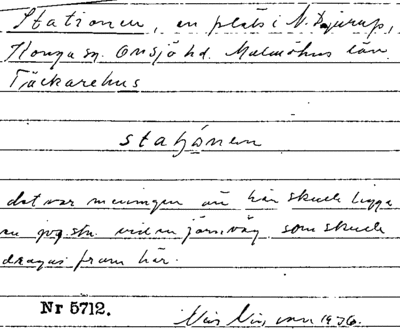 Stationen, en plats i N. Djurup,
Honga sn. Onsjö hd. Malmöhus län
Täckarehus
statjónen
det var meningen att här skulle ligga
en jvg.stn. vid en järnväg som skulle
dragas fram här.
Nr 5712.
1936.